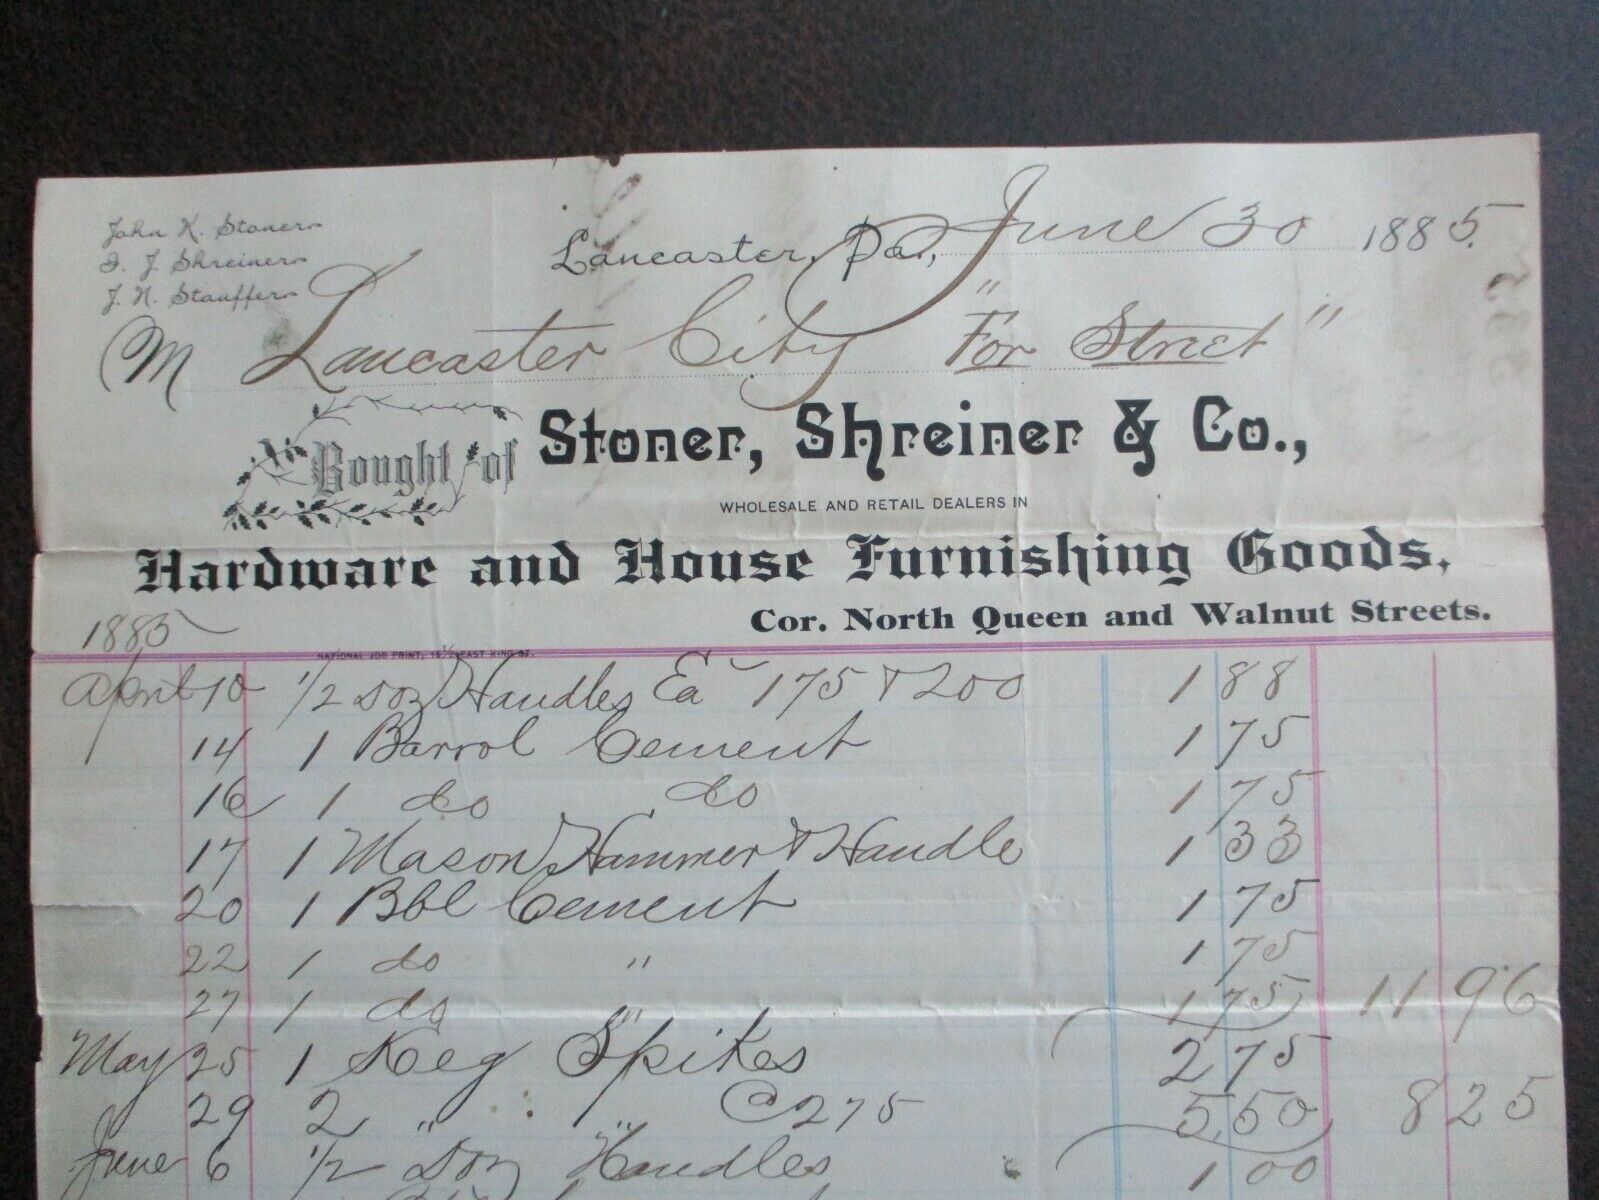 John K. Stoner
J. N. Stauffer
Lancaster, Pa., June 30 1885.
M Lancaster City "For Street"
Bought of Stoner, Shreiner & Co.,
WHOLESALE AND RETAIL DEALERS IN
Hardware and House Furnishing Goods,
Cor. North Queen and Walnut Streets.
1885
NATIONAL JOB PRINT, 15 1/2 EAST KING ST.
April 10 1/2 Doz Handles Ea 175 & 200 1 88
14 1 Barrol Cement 1 75
16 1 do do 1 75
17 1 Mason Hammer & Handle 1 33
20 1 Bbl Cement 1 75
22 1 do " 1 75
27 1 do " 1 75 11 96
May 25 1 Keg Spikes 2 75
29 2 " " @ 275 5,50 8 25
June 6 1/2 Doz Handles 1 00